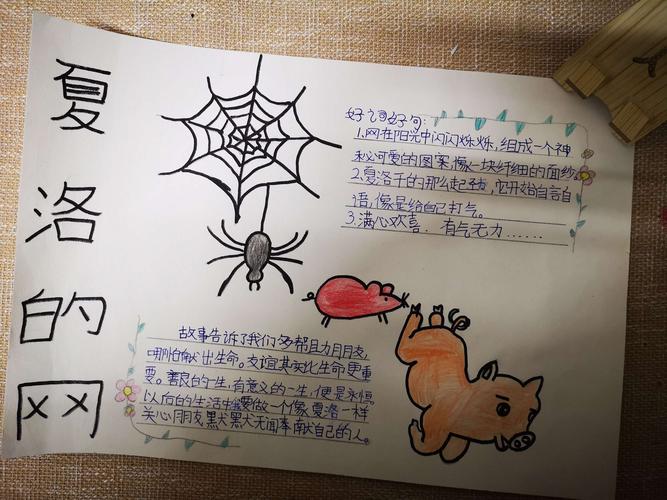 夏洛的网
好词好句:
1.网在阳光中闪闪烁烁,组成一个神
秘可爱的图案,像一块纤细的面纱
2.夏洛干的那么起劲,它开始自言自
语,像是给自己打气。
3.满心欢喜. 有气无力……
故事告诉了我们多帮且力月友,
哪怕献出生命。友谊其实比生命更重
要。善良的一生,有意义的一生,便是永恒
以后的生活中要做一个像夏洛一样
关心朋友黑犬黑犬无闻奉献自己的人。